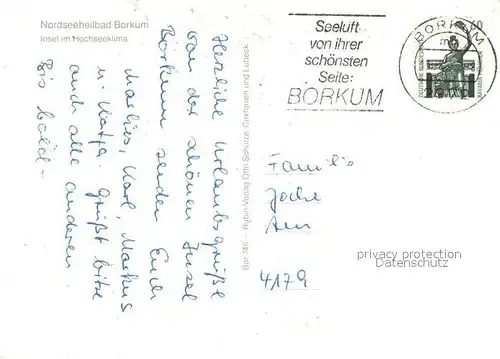 Nordseeheilbad Borkum
Insel im Hochseeklima
Herzliche Urlaubsgrüße
von der schönen Insel
Borkum senden Euch
Marlies, Karl, Markus
u. Katja. Grüßt bitte
auch alle anderen.
Bis bald -
Ryba-Verlag Otto Schulze, Cuxhaven und Lübeck
Seeluft
von ihrer
schönsten
Seite:
BORKUM
BORKUM
60
Familie
4179
privacy protection
Datenschutz